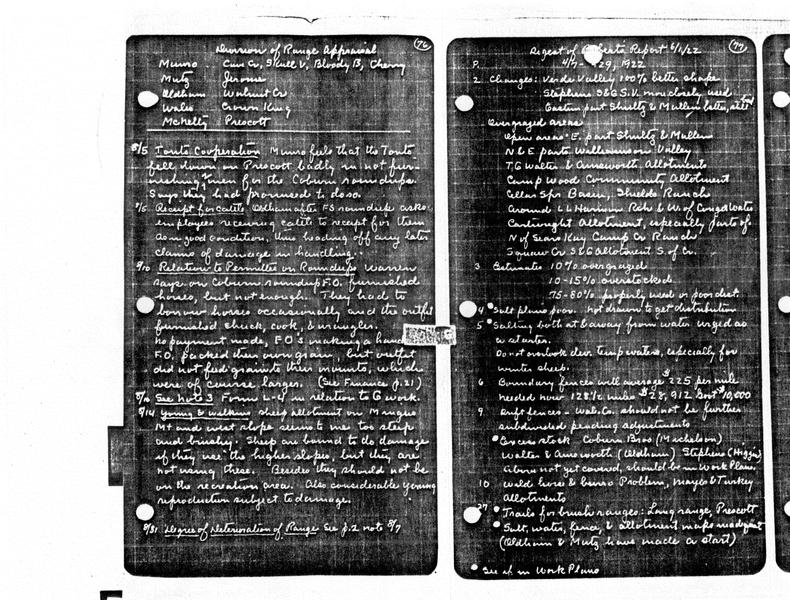 76
Division of Range Appraisal
Munro Cun Cr, Skull V, Bloody B, Cherry
Mutz Jerome
Oldham Walnut Cr
Wales Crown King
McKelty Prescott
8/5 Tonto Cooperation Munro feels that the Tonto
fell down on Prescott badly in not fur-
nishing men for the Coburn roundups.
Says they had promised to do so.
8/5 Receipt for cattle Oldham after FS roundup asks
employees receiving cattle to receipt for them
as in good condition, thus heading off any later
claims of damage in handling.
8/10 Relation to Permittee on Roundups Warren
says on Coburn roundup F.O. furnished
horses, but not enough. They had to
borrow horses occasionally and the outfit
furnished chuck, cook, & wrangler.
No payment made, FO's making a hand
F.O. packed their own grain, but outfit
did not feed grain to their mounts, which
were of course larger. (See Finance p. 21)
8/10 See Note 3 Form L-4 in relation to G work.
8/14 Young & Wilkins sheep allotment on Mingus
Mt and west slope seems to me too steep
and brushy. Sheep are bound to do damage
if they use the higher slope, but they are
not using these. Besides they should not be
on the recreation area. Also considerable young
reproduction subject to damage.
8/31 Degree of Deterioration of Range See p. 2 note 8/7
77
Digest of Report 6/1/22
P. 4/7 - 29, 1922
2 Changes: Verde Valley 100% better shape
Stephens S & G S.V. more closely used
Eastern part Shultz & Mullen better, still
Overgrazed areas
Open areas E. part Shultz & Mullen
N & E parts Williamson Valley
T.G Walter & Ainsworth Allotments
Camp Wood Community Allotment
Cellar Spr Basin, Shields Ranch
Around Ranch & W. of Congd Water
Cartwright Allotment, especially parts of
N of Sears Kay Camp Cr Ranch
Squaw Cr S & G allotment S. of Cr.
3 Estimates 10% overgrazed
10-15% overstocked
75-80% properly used or poor dist.
4 Salt plans poor. Not drawn to get distribution
5 Salting both at & away from water urged as
a starter.
Do not overlook dev. temp waters, especially for
winter sheep.
6 Boundary fences will average $225 per mile
needed now 128 1/2 miles $28,912 Govt $10,000
9 Drift fences - Wal. Co. should not be further
subdivided pending adjustments
Excess stock Coburn Bros (Michelson)
Walter & Ainsworth (Oldham) Stephens (Higgin)
above not yet covered, should be in Work Plans.
10 Wild horse & burro Problem, Mayer & Turkey
Allotments
27 Trails for brush ranges: Long range, Prescott
Salt, water, fence, & allotment maps
(Oldham & Mutz have made a start)
See if in Work Plans